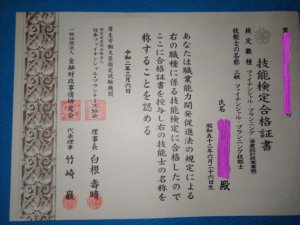 技能検定合格証書
検定職種 ファイナンシャル・プランニング
技能士の名称 三級 ファイナンシャル・プランニング技能士
氏名
殿
昭和五十三年六月二十六日生
あなたは職業能力開発促進法の規定による
右の職種に係る技能検定に合格したので
ここに合格証書を授与し右の技能士の名称を
称することを認める
令和二年三月六日
厚生労働大臣指定試験機関
日本ファイナンシャル・プランナーズ協会
理事長 白根壽晴
一般社団法人 金融財政事情研究会
代表理事 竹崎巌